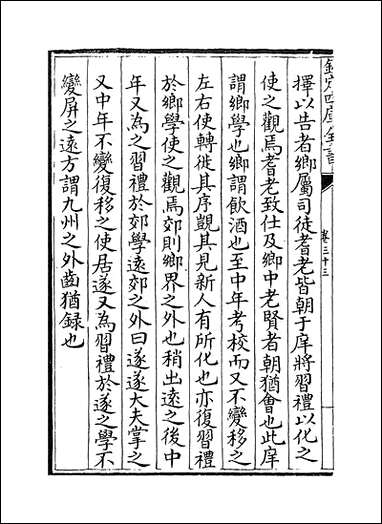 欽定四庫全書
卷三十三
擇以告者鄉屬司徒耆老皆朝于庠將習禮以化之
使之觀焉耆老致仕及鄉中老賢者朝猶會也此庠
謂鄉學也鄉謂飲酒也至中年考校而又不變移之
左右使轉徙其序覬其見新人有所化也亦復習禮
於鄉學使之觀焉郊則鄉界之外也稍出逺之後中
年又為之習禮於郊學逺郊之外曰遂遂大夫掌之
又中年不變復移之使居遂又為習禮於遂之學不
變屏之逺方謂九州之外齒猶録也